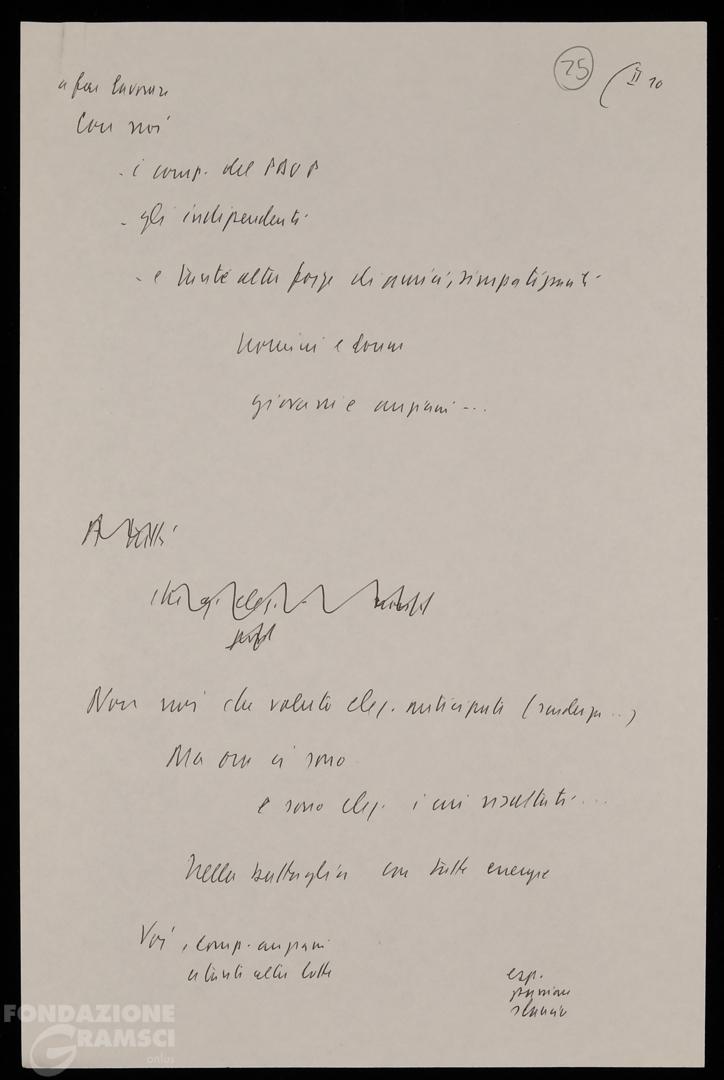 25
II 10
a far lavorare
Con noi
- i comp. del PDUP
- gli indipendenti
- e tante altre forze di amici, simpatizzanti
uomini e donne
giovani e anziani ...
A tutti
che elez.
Non noi che voluto elez. anticipate (scadenza ...)
Ma ora ci sono
e sono elez. i cui risultati ...
Nella battaglia con tutte energie
Voi, comp. anziani
e tante altre lotte
esp.
passione
slancio
FONDAZIONE
GRAMSCI
onlus